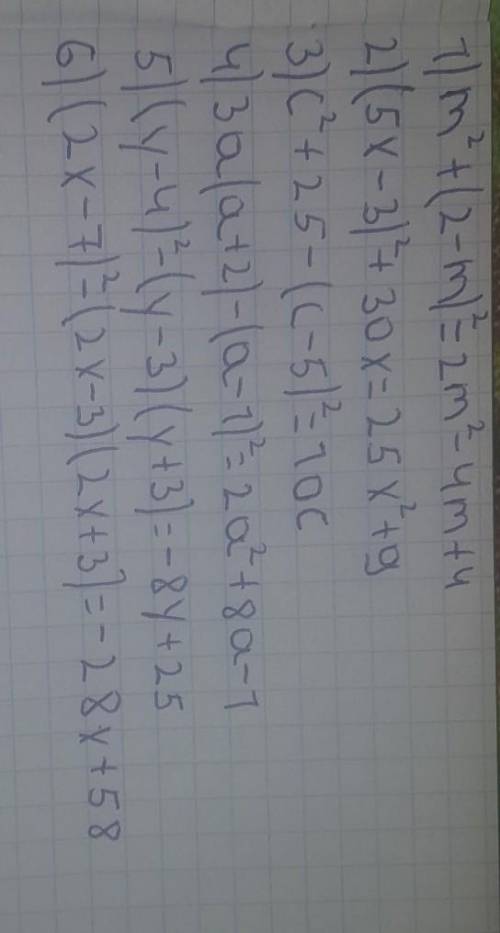 1) m² + (2 - m)² = 2m² - 4m + 4
2) (5x - 3)² + 30x = 25x² + 9
3) c² + 25 - (c - 5)² = 10c
4) 3a(a + 2) - (a - 1)² = 2a² + 8a - 1
5) (y - 4)² - (y - 3)(y + 3) = -8y + 25
6) (2x - 7)² - (2x - 3)(2x + 3) = -28x + 58